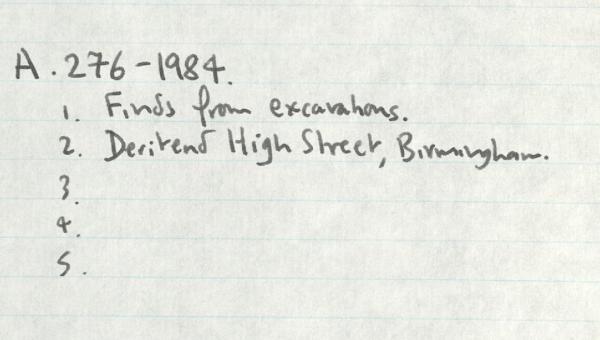 A. 276-1984.
1. Finds from excavations.
2. Deritend High Street, Birmingham.
3.
4.
5.